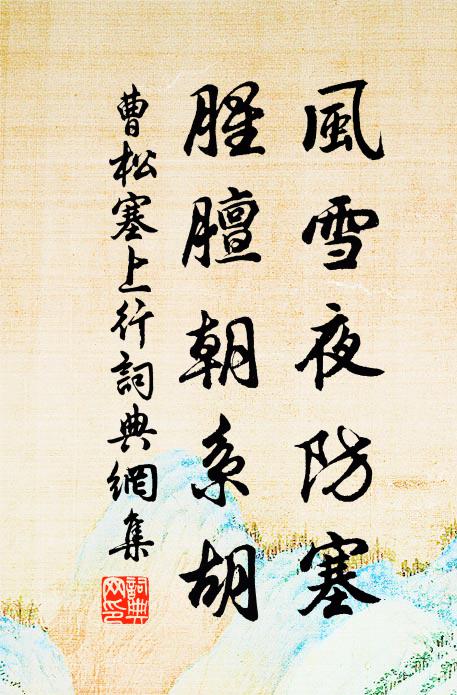 風雪夜防塞
腥膻朝系胡
曹松塞上行詞典網集